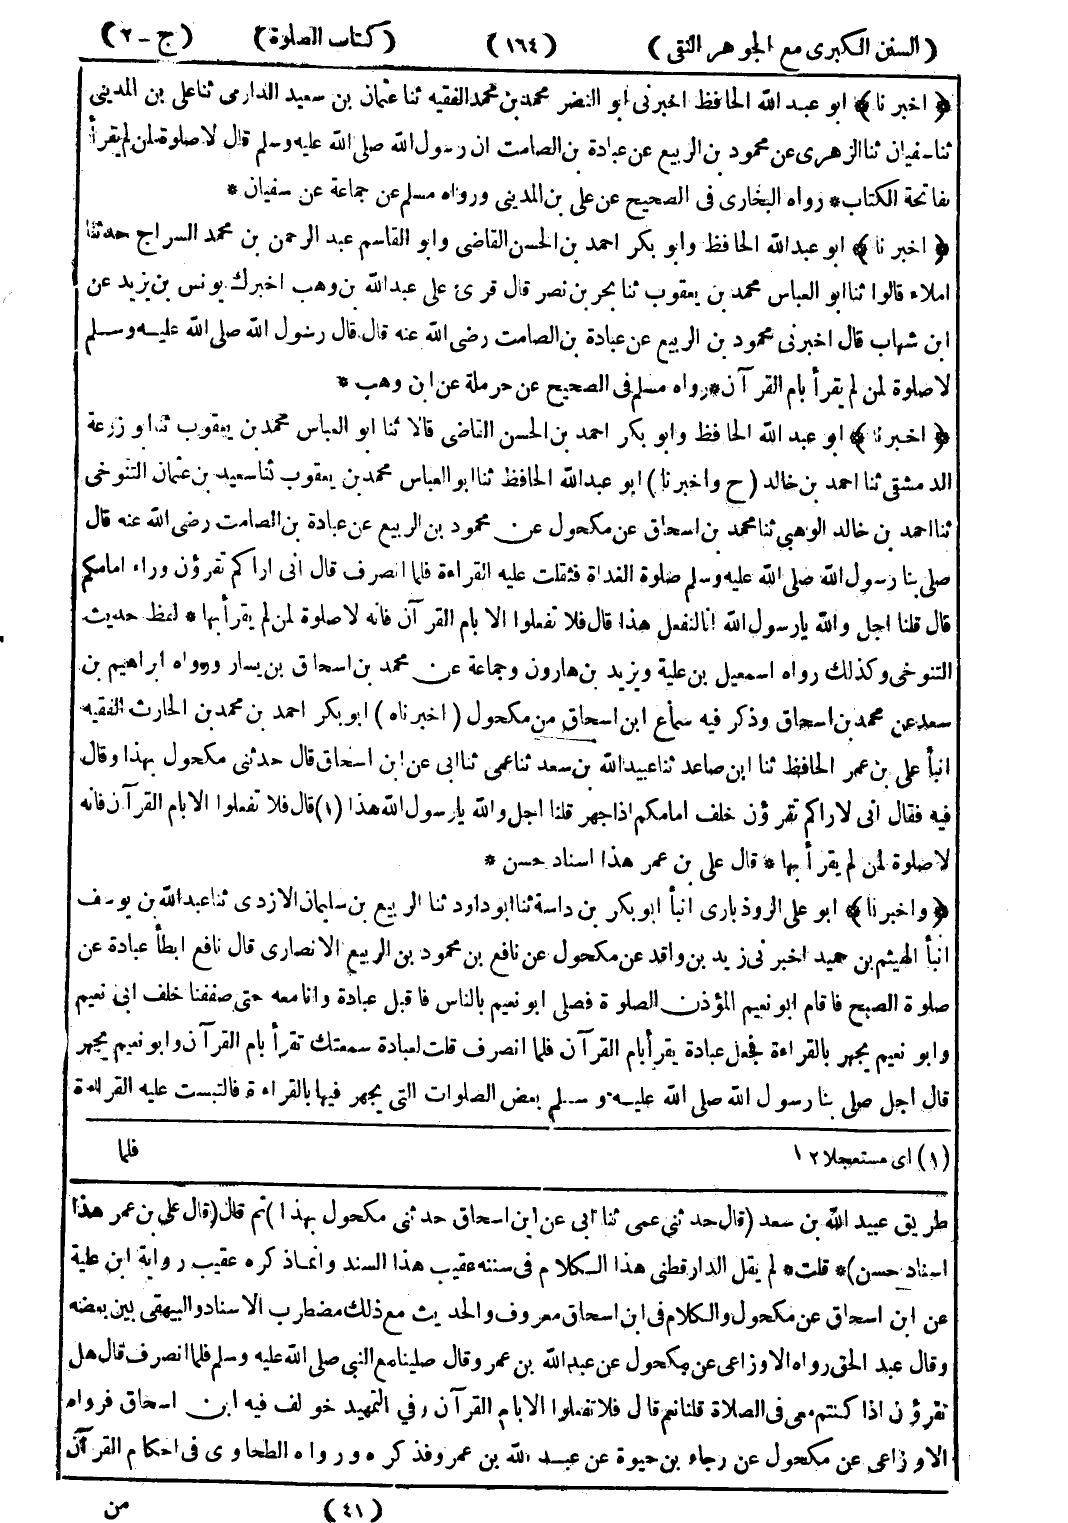 (السنن الكبرى مع الجوهر النقى) (١٦٤) (كتاب الصلوة) (ج - ٢)
﴿ اخبرنا ﴾ ابو عبد الله الحافظ اخبرنى ابو النضر محمد بن محمد الفقيه ثنا عثمان بن سعيد الدارمى ثنا على بن المدينى
ثنا سفيان ثنا الزهرى عن محمود بن الربيع عن عبادة بن الصامت ان رسول الله صلى الله عليه وسلم قال لا صلوة لمن لم يقرأ
بفاتحة الكتاب * رواه البخارى فى الصحيح عن على بن المدينى ورواه مسلم عن جماعة عن سفيان *
﴿ اخبرنا ﴾ ابو عبد الله الحافظ وابو بكر احمد بن الحسن القاضى وابو القاسم عبد الرحمن بن محمد السراج حدثنا
املاء قالوا ثنا ابو العباس محمد بن يعقوب ثنا بحر بن نصر قال قرئ على عبد الله بن وهب اخبرك يونس بن يزيد عن
ابن شهاب قال اخبرنى محمود بن الربيع عن عبادة بن الصامت رضى الله عنه قال قال رسول الله صلى الله عليه وسلم
لا صلوة لمن لم يقرأ بام القرآن * رواه مسلم فى الصحيح عن حرملة عن ابن وهب *
﴿ اخبرنا ﴾ ابو عبد الله الحافظ وابو بكر احمد بن الحسن القاضى قالا ثنا ابو العباس محمد بن يعقوب ثنا ابو زرعة
الدمشقى ثنا احمد بن خالد (ح واخبرنا) ابو عبد الله الحافظ ثنا ابو العباس محمد بن يعقوب ثنا سعيد بن عثمان التنوخى
ثنا احمد بن خالد الوهبى ثنا محمد بن اسحاق عن مكحول عن محمود بن الربيع عن عبادة بن الصامت رضى الله عنه قال
صلى بنا رسول الله صلى الله عليه وسلم صلوة الغداة فثقلت عليه القراءة فلما انصرف قال انى اراكم تقرؤن وراء امامكم
قال قلنا اجل والله يا رسول الله انا لنفعل هذا قال فلا تفعلوا الا بام القرآن فانه لا صلوة لمن لم يقرأ بها * لفظ حديث
التنوخى وكذلك رواه اسمعيل بن علية ويزيد بن هارون وجماعة عن محمد بن اسحاق بن يسار ورواه ابراهيم بن
سعد عن محمد بن اسحاق وذكر فيه سماع ابن اسحاق من مكحول (اخبرناه) ابو بكر احمد بن محمد بن الحارث الفقيه
انبأ على بن عمر الحافظ ثنا ابن صاعد ثنا عبيد الله بن سعد ثنا عمى ثنا ابى عن ابن اسحاق قال حدثنى مكحول بهذا وقال
فيه فقال انى لاراكم تقرؤن خلف امامكم اذا جهر قلنا اجل والله يا رسول الله هذا (١) قال فلا تفعلوا الا بام القرآن فانه
لا صلوة لمن لم يقرأ بها * قال على بن عمر هذا اسناد حسن *
﴿ واخبرنا ﴾ ابو على الروذبارى انبأ ابو بكر بن داسة ثنا ابو داود ثنا الربيع بن سليمان الازدى ثنا عبد الله بن يوسف
انبأ الهيثم بن حميد اخبرنى زيد بن واقد عن مكحول عن نافع بن محمود بن الربيع الانصارى قال نافع ابطأ عبادة عن
صلوة الصبح فاقام ابو نعيم المؤذن الصلوة فصلى ابو نعيم بالناس فاقبل عبادة وانا معه حتى صففنا خلف ابى نعيم
وابو نعيم يجهر بالقراءة فجعل عبادة يقرأ بام القرآن فلما انصرف قلت لعبادة سمعتك تقرأ بام القرآن وابو نعيم يجهر
قال اجل صلى بنا رسول الله صلى الله عليه وسلم بعض الصلوات التى يجهر فيها بالقراءة فالتبست عليه القراءة
(١) اى مستعجلا ١٢ فلما
طريق عبيد الله بن سعد (قال حدثنى عمى ثنا ابى عن ابن اسحاق حدثنى مكحول بهذا) ثم قال (قال على بن عمر هذا
اسناد حسن) * قلت * لم يقل الدارقطنى هذا الكلام فى سننه عقيب هذا السند وانما ذكره عقيب رواية ابن علية
عن ابن اسحاق عن مكحول والكلام فى ابن اسحاق معروف والحديث مع ذلك مضطرب الاسناد والبيهقى بين بعضه
وقال عبد الحق رواه الاوزاعى عن مكحول عن عبد الله بن عمر وقال صلينا مع النبى صلى الله عليه وسلم فلما انصرف قال هل
تقرؤن اذا كنتم معى فى الصلاة قلنا نعم قال فلا تفعلوا الا بام القرآن وفي التمهيد خولف فيه ابن اسحاق فرواه
الاوزاعى عن مكحول عن رجاء بن حيوة عن عبد الله بن عمرو فذكره ورواه الطحاوى فى احكام القرآن
(٤١) من